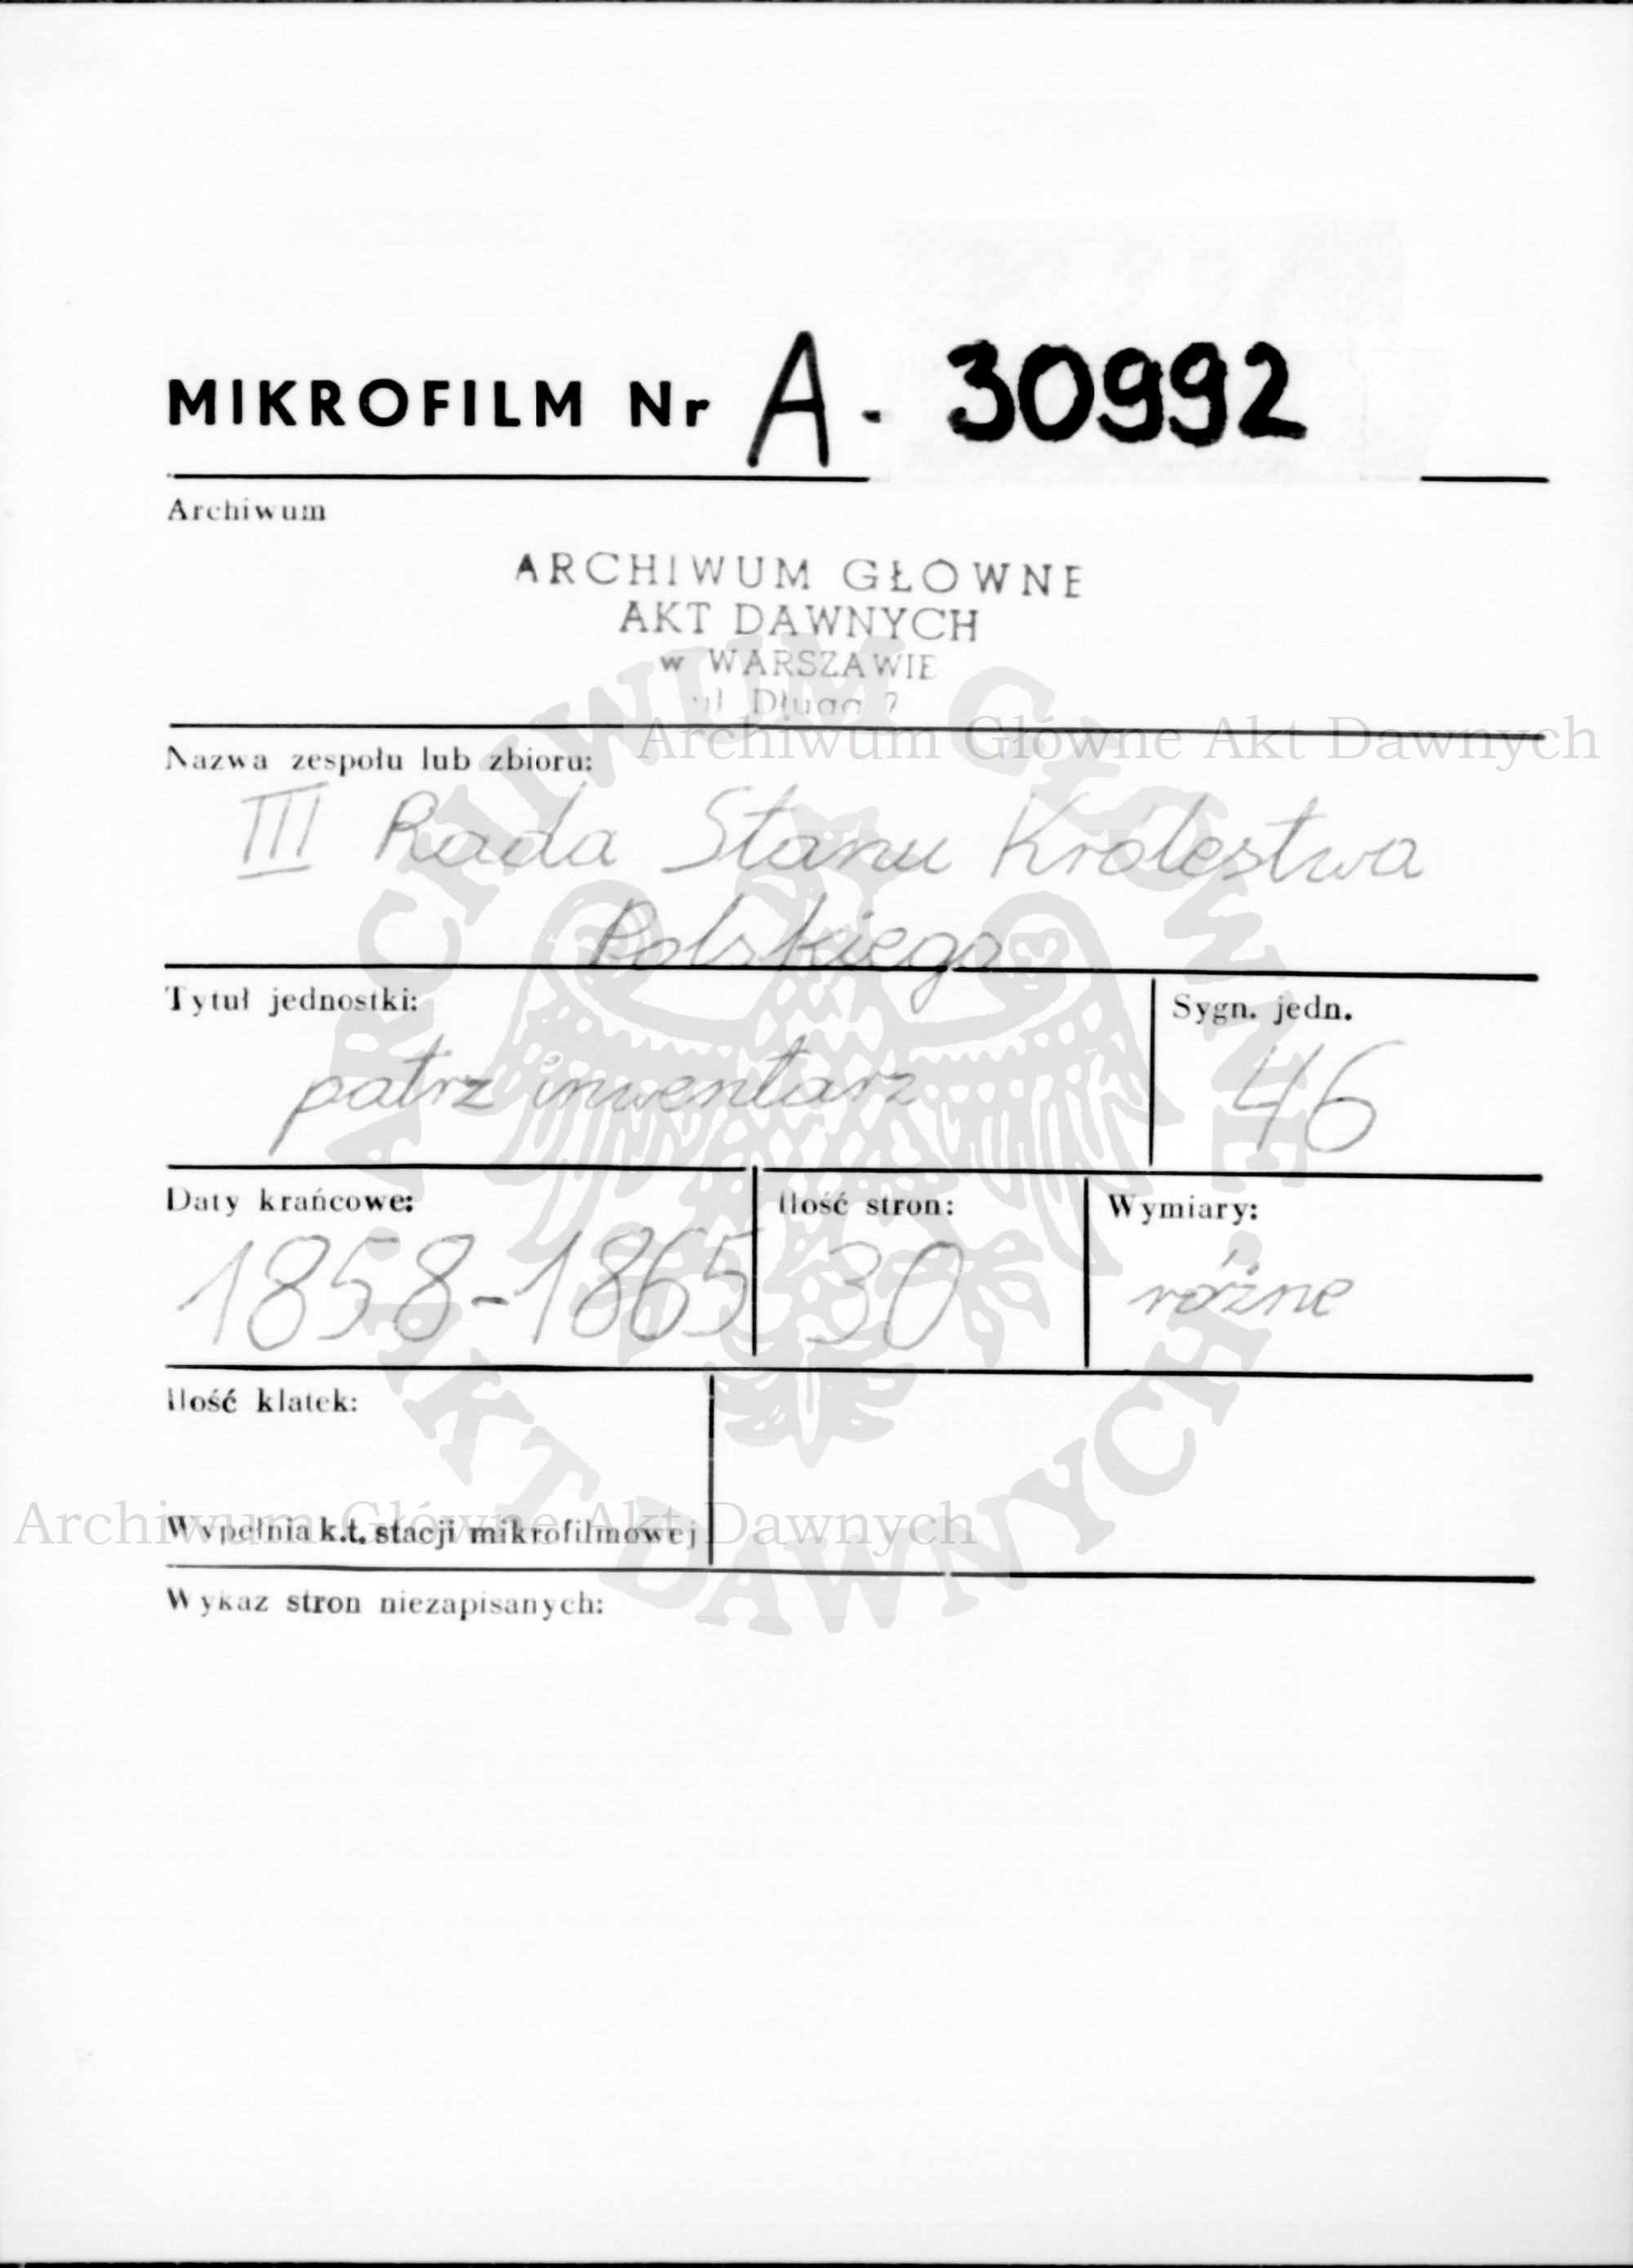 MIKROFILM Nr A - 30992
Archiwum
ARCHIWUM GŁOWNE
AKT DAWNYCH
w WARSZAWIE
ul Długa 7
Archiwum Główne Akt Dawnych
Nazwa zespołu lub zbioru:
III Rada Stanu Królestwa
Polskiego
Tytuł jednostki:
patrz inwentarz
Sygn. jedn.
46
Daty krańcowe:
1858-1865
Ilość stron:
30
Wymiary:
różne
Ilość klatek:
Archiwum Główne Akt Dawnych
Wypełnia k.t. stacji mikrofilmowej
Wykaz stron niezapisanych:
ARCHIWUM GŁÓWNE
AKT DAWNYCH